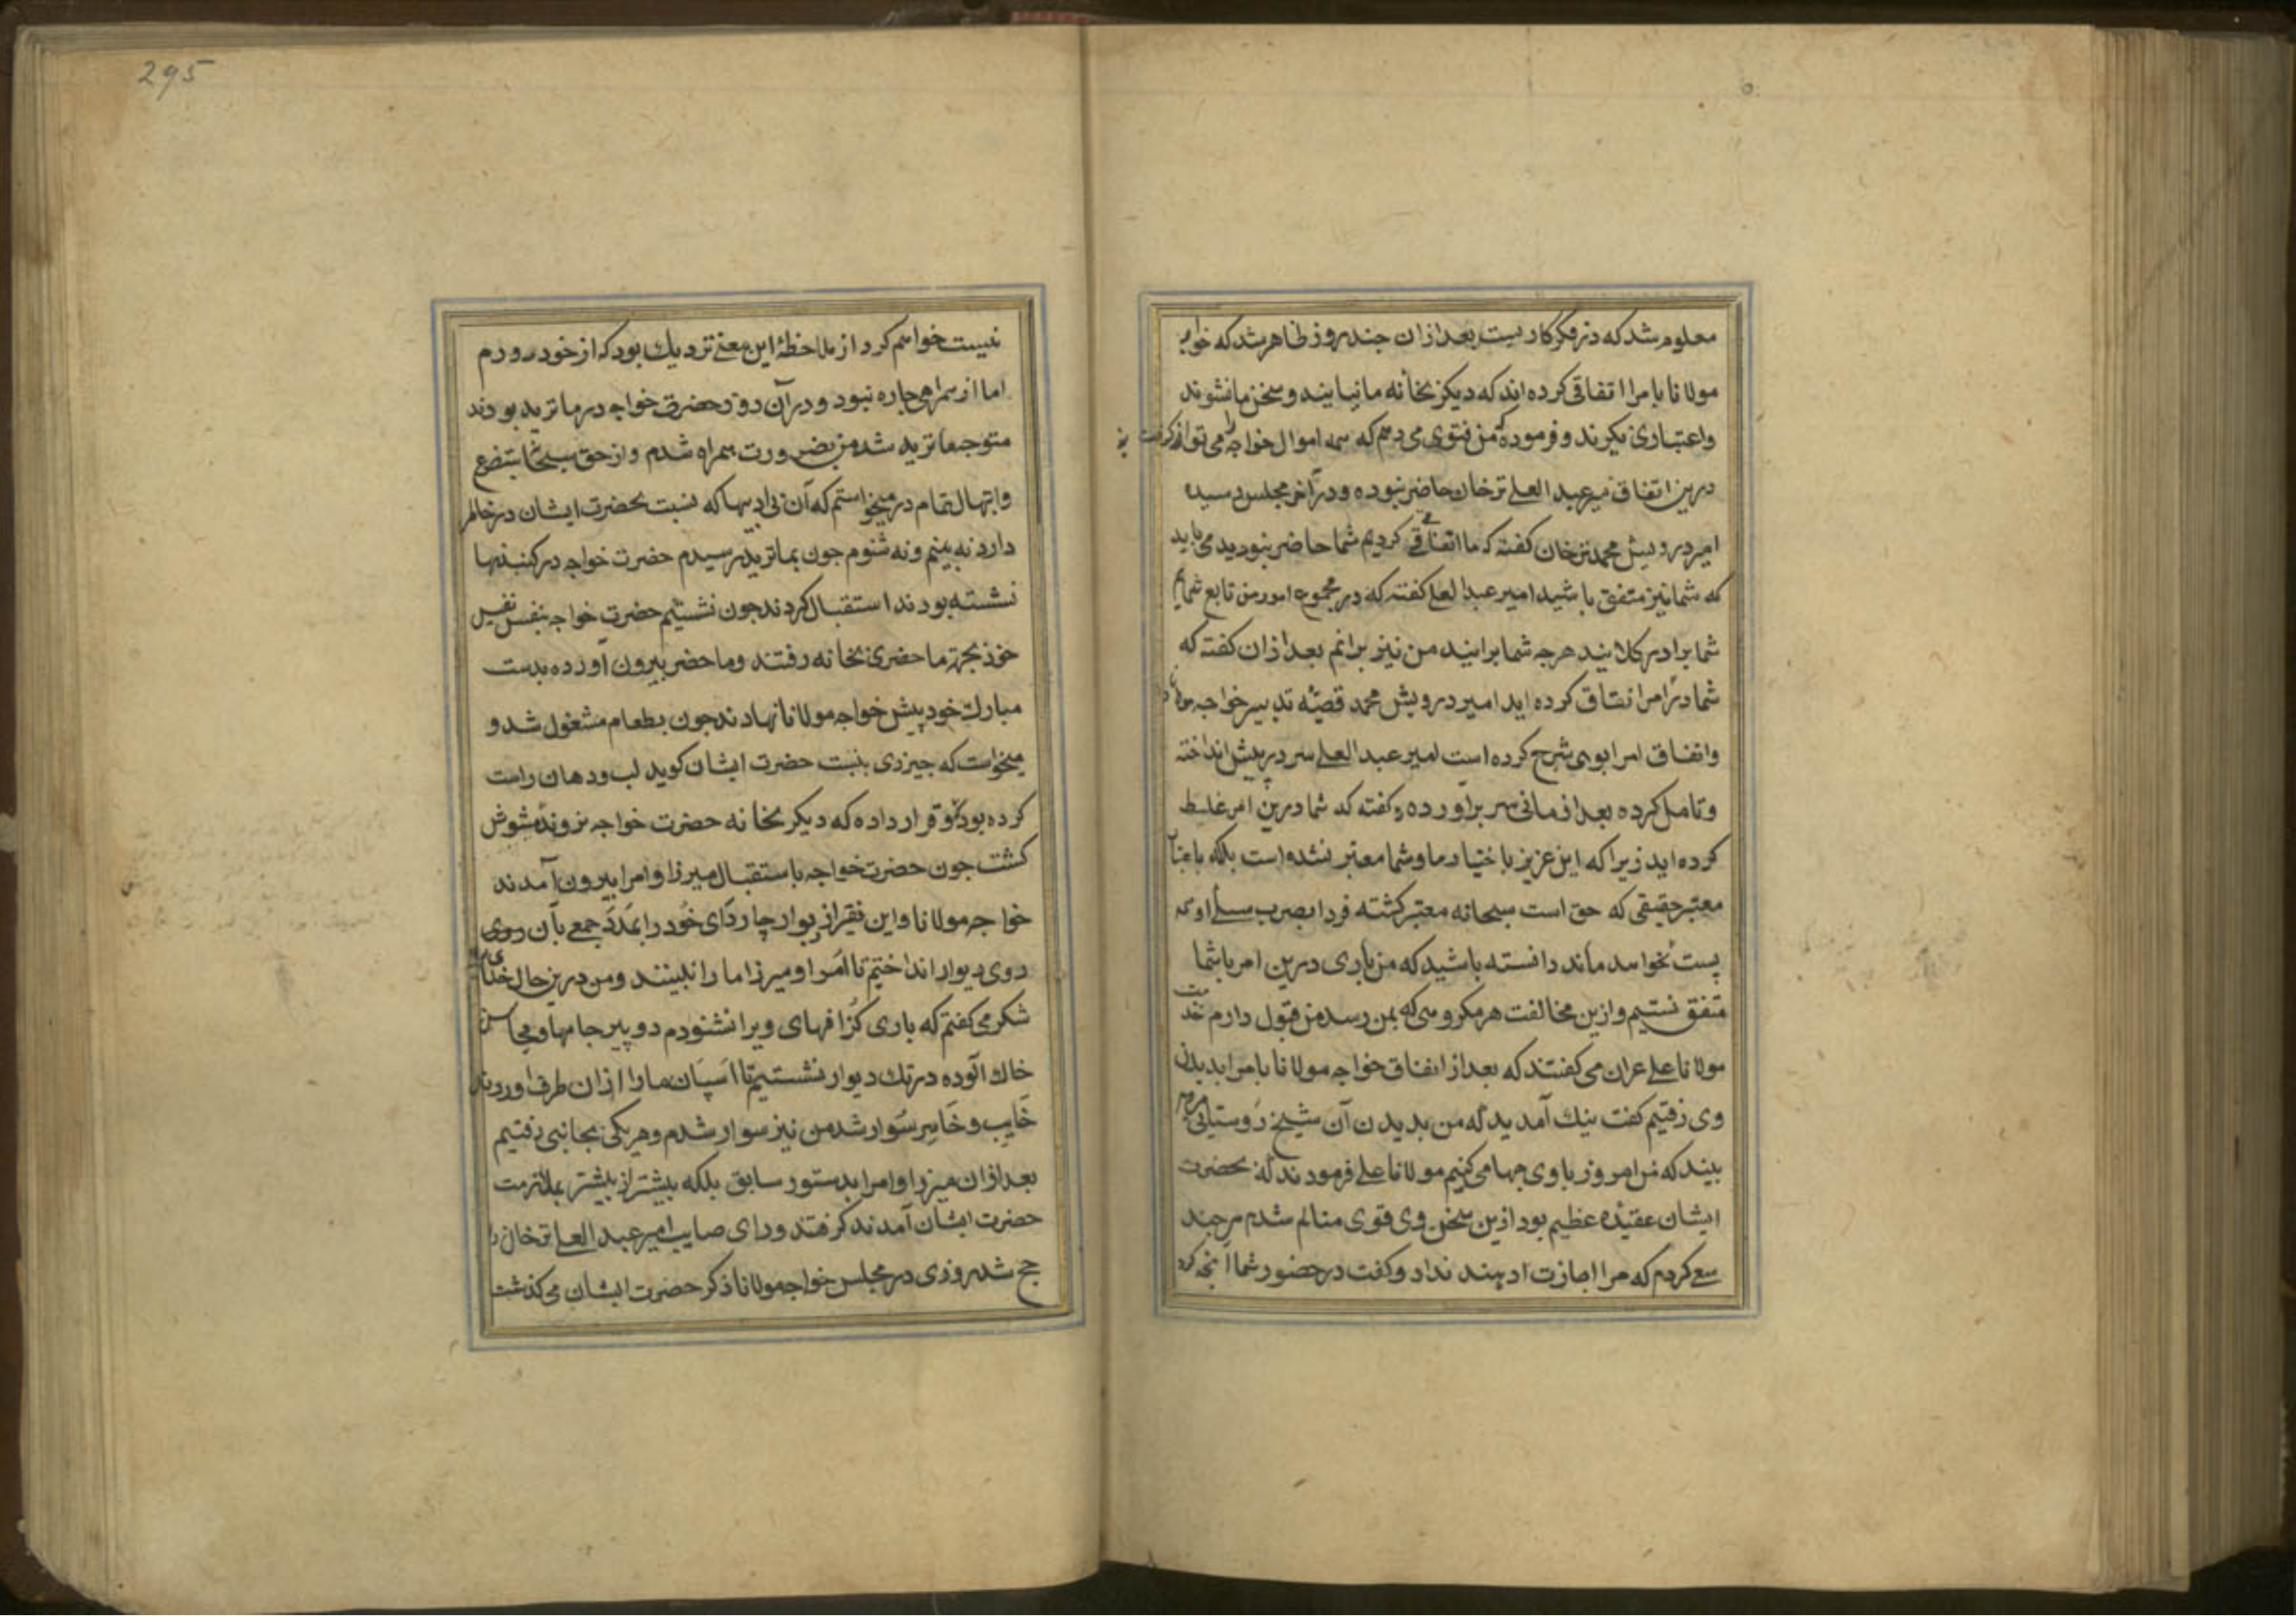 معلوم شد که در فکر کاریست بعد ازان چند روز ظاهر شد که خواجه
مولانا با مرا اتفاقی کرده اند که دیگر بخانه ما نیایند و سخن ما نشنوند
واعتباری نکیرند و فرموده که من فتوی می دهم که همه اموال خواجه را می توان گرفت
درین اتفاق میر عبد العلی ترخان حاضر نبوده و در آخر مجلس رسیده
امیر درویش محمد ترخان کفته که ما اتفاقی کردیم شما حاضر نبودید می باید
که شما نیز متفق باشید امیر عبد العلی کفته که در مجموع امور من تابع شمایم
شما برادر کلانید هرچه شما برانید من نیز برانم بعد ازان کفته که
شما در امر اتفاق کرده اید امیر درویش محمد قصه تدبیر خواجه مولانا
واتفاق امرا بوی شرح کرده است امیر عبد العلی سر در پیش انداخته
وتامل کرده بعد از مانی سر براورده و کفته که شما درین امر غلط
کرده اید زیرا که این عزیز باختیار ما و شما معتبر نشده است بلکه باعتبار
معتبر حقیقی که حق است سبحانه معتبر کشته فردا بضرب سیلی او که
پست نخواهد ماند دانسته باشید که من باری درین امر با شما
متفق نیستم و ازین مخالفت هر مکروهی که بمن رسد من قبول دارم خدمت
مولانا علی عران می کفتند که بعد از اتفاق خواجه مولانا با مرا بدیدن
وی رفتیم کفت نیک آمدید که من بدیدن آن شیخ روستایی میروم
بیند که من امروز با وی چها می کنم مولانا علی فرمودند که بحضرت
ایشان عقیده عظیم بود ازین سخن وی قوی متالم شدم هر چند
سعی کردم که مرا اجازت دهند نداد و کفت در حضور شما آنچه کرد
295
نیست خواهم کرد از ملاحظهٔ این معنی نزدیک بود که از خود روم
اما از همراهی چاره نبود و در آن روز حضرت خواجه در ماترید بودند
متوجه ماترید شد من بضرورت همراه شدم و از حق سبحانه بتضرع
وابتهال تمام در میخواستم که آن بی ادبیها که نسبت بحضرت ایشان در خاطر
دارد نه بینم و نه شنوم چون بماترید رسیدم حضرت خواجه در کنبدیها
نشسته بودند استقبال کردند چون نشستیم حضرت خواجه بنفس نفیس
خود بجهة ما حضری بخانه رفتند وما حضر بیرون آورده بدست
مبارک خود پیش خواجه مولانا نهادند چون بطعام مشغول شد و
میخواست که چیزی بنسبت حضرت ایشان کوید لب ودهان راست
کرده بود که وقرار داده که دیکر بخانه حضرت خواجه نروند مشوش
کشت چون حضرت خواجه باستقبال میرزا و امرا بیرون آمدند
خواجه مولانا واین فقیر از دیوار چار ردای خود را بمدد جمعی بآن روی
روی دیوار انداختیم تا امرا و میرزا ما را نبینند ومن درین حال خدای را
شکر می کفتم که باری کزافهای ویرا نشنودم دو پیر جامها و محاسن
خاک آلوده در تک دیوار نشستیم تا اسپان ما را ازان طرف اوردند
خایب و خاسر سوار شد من نیز سوار شدم و هر یکی بجانبی رفتیم
بعد ازان میرزا و امرا بدستور سابق بلکه بیشتر از بیشتر بملازمت
حضرت ایشان آمدند کرفتند و رای صایب امیر عبد العلی ترخان را
حج شد روزی در مجلس خواجه مولانا ذکر حضرت ایشان می کذشت